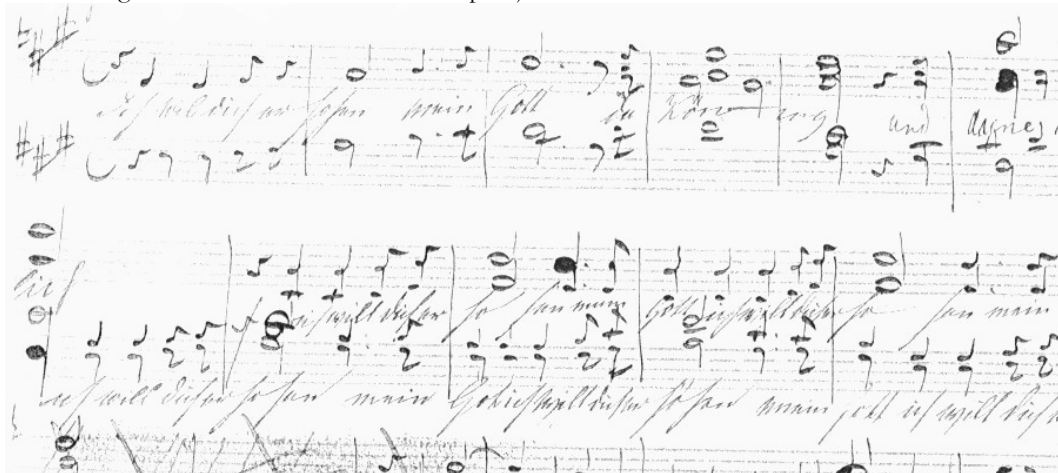 Ich will dich er hohen mein Gott du Kön ig und
dich
ich will dich er ho hen mein Gott ich will dich er ho hen mein
ich will dich er ho hen mein Gott ich will dich er ho hen mein gott ich will dich